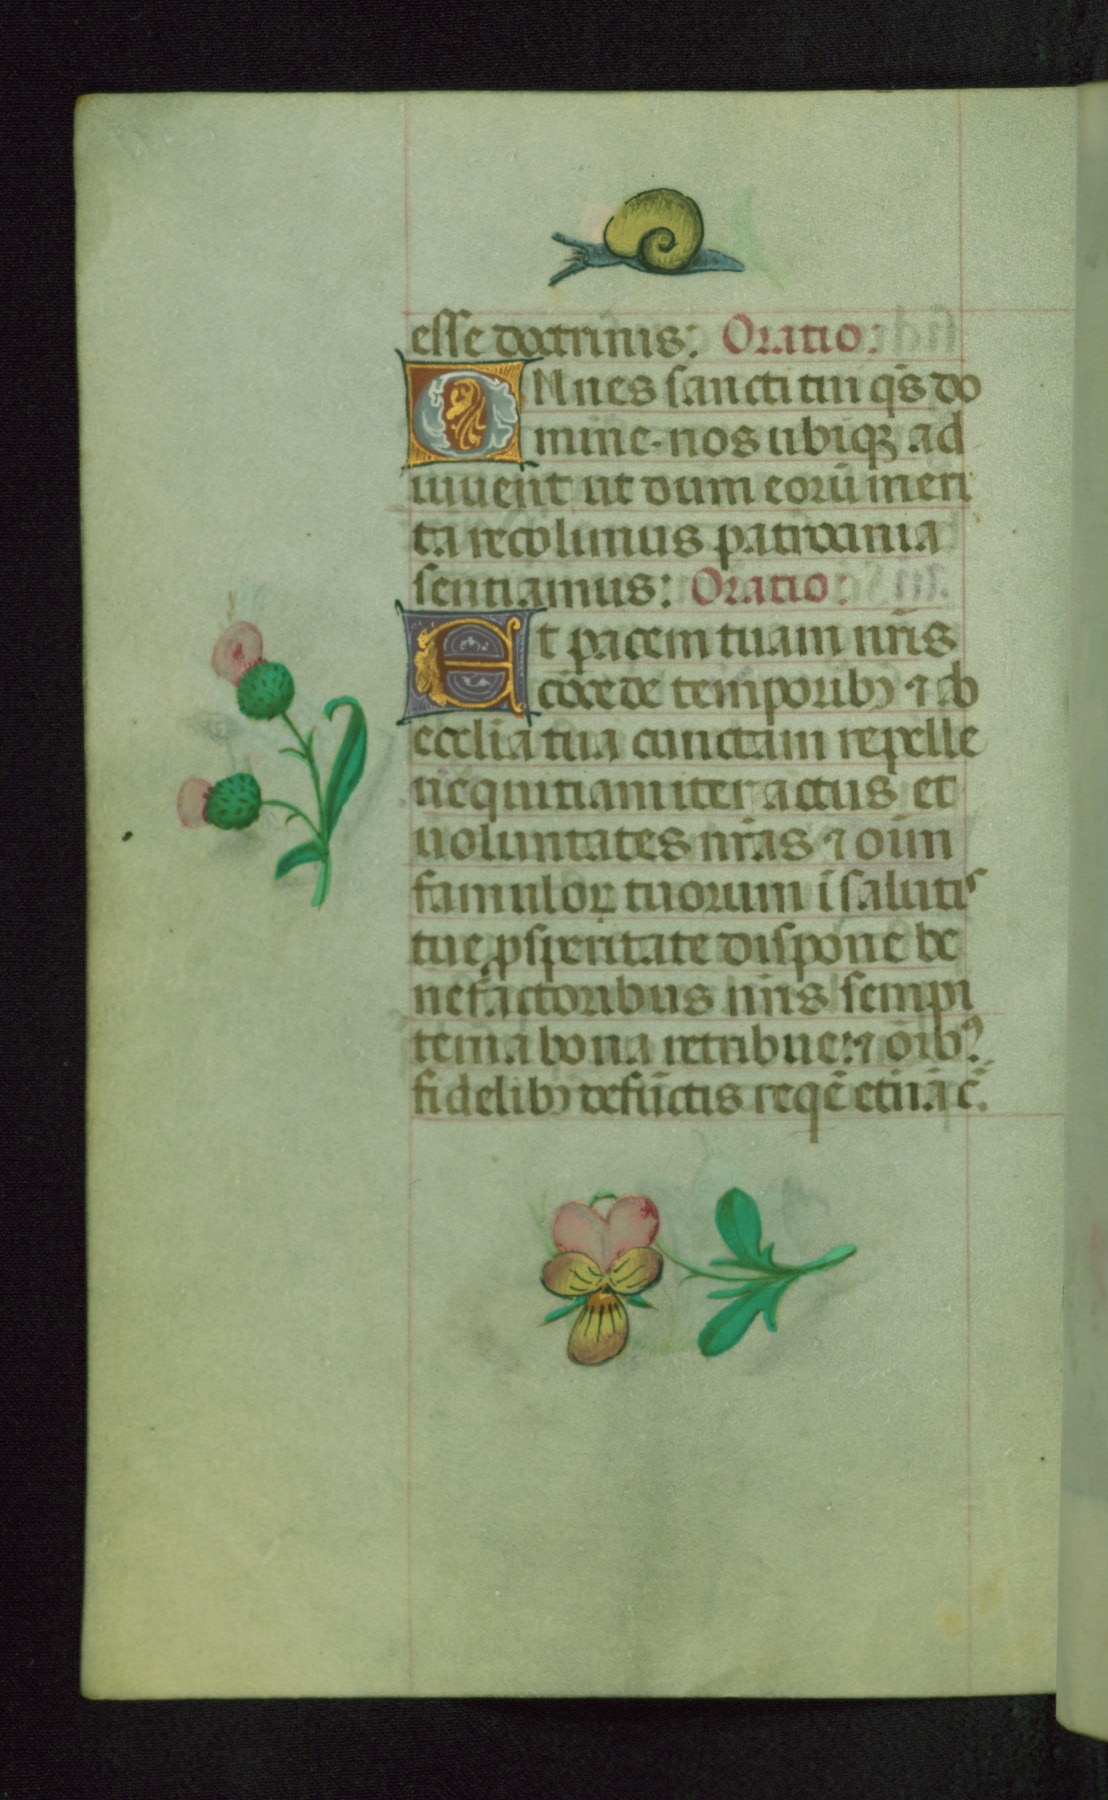 esse doctrinis: Oratio:
OMnes sancti tui q̄s do
mine·nos ubiqꝫ ad
iuuent ut dum eorū meri
ta recolimus patrocinia
sentiamus: Oratio:
Et pacem tuam nr̄is
cōcede temporibꝫ ⁊ ab
ecclīa tua cunctam repelle
nēquitiam iter actus et
uoluntates nr̄as ⁊ oīm
famulorꝝ tuorum ī salutis
tue ꝓsperitate dispone be
nefactoribus nr̄is sempi
terna bona retribue:⁊ oīb⁹
fidelibꝫ defūctis reqē etnā c̄.